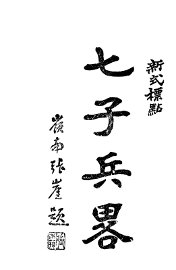 新式標點
七子兵畧
嶺南張崖題